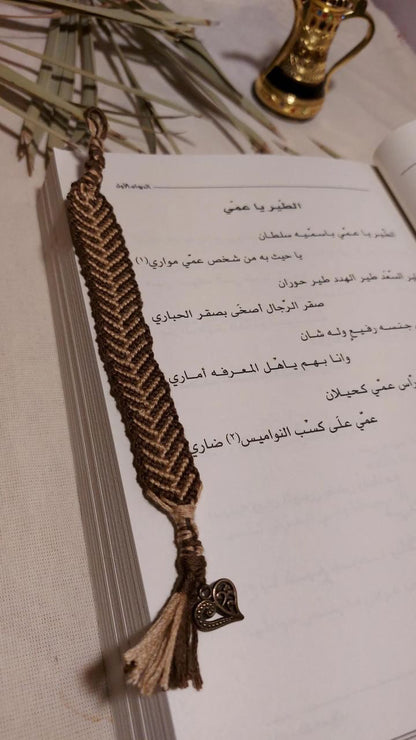 الطير يا عمّي
الطير يا عـمّي باسمّيه سلطان
يا حيث به من شخص عمّي مواري(١)
السّعَد طير الهدد طير حوران
صقر الرّجال أضحَى بصقر الحباري
جنسه رفيعٍ وله شان
وانا بهم ياهْل المـعـرفه أماري
راس عمّي كحيلان
عمّي علَى كسْب النواميس(٢) ضاري